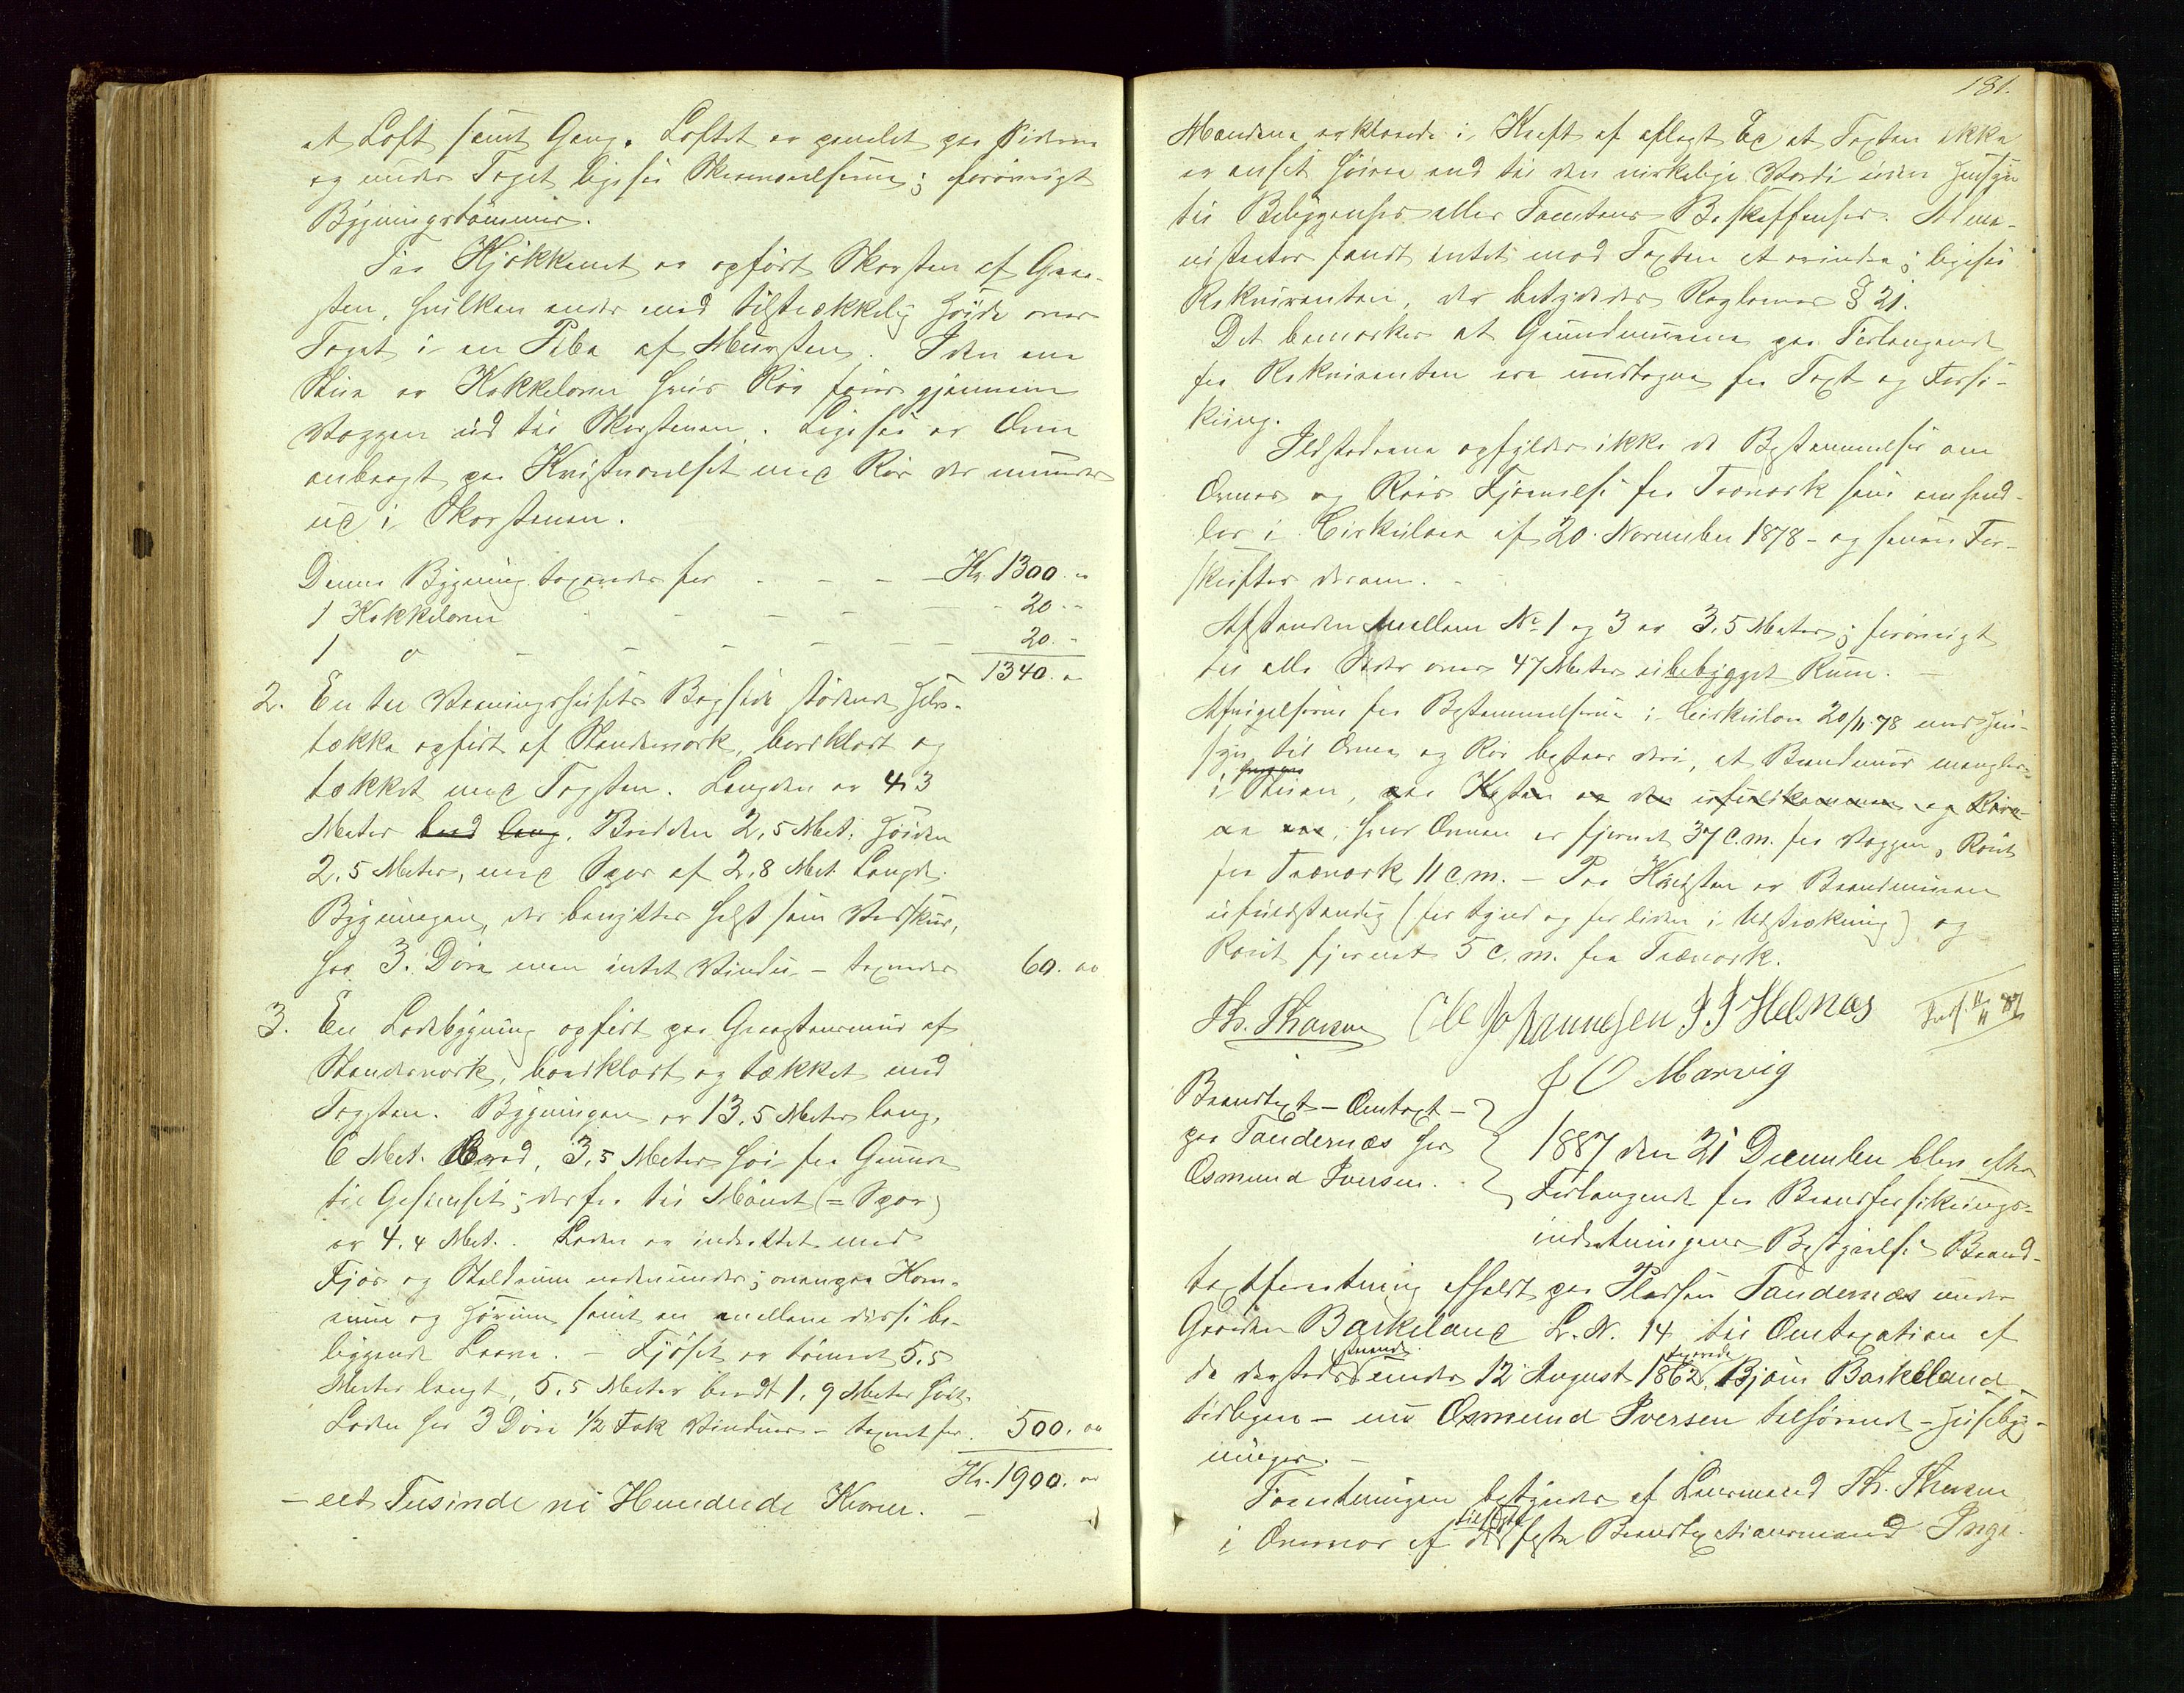 et Loft samt Gang. Loftet er panelet paa Siderne
og under Taget ligesaa Skraavælserne; forøvrigt
Bygningstømmer.
Fra Kjøkkenet er opført Skorsten af Graa-
sten, hvilken ender med tilstrækkelig Høide over
Taget i en Pibe af Mursten. I den ene
Stue er Kakkelovn hvis Rør fører gjennem
Væggen ud til Skorstenen. Ligesaa er Ovn
anbragt paa Kvistværelset med Rør der munder
ud i Skorstenen.
Denne Bygning taxeredes for - - - Kr. 1300. "
1 Kakkelovn - - - - - 20. "
1 do - - - - - 20. "
1340. "
2. En til Vaaningshusets Bagside stødende Hels-
tække opført af Standerværk, bordklædt og
tækket med Tagsten. Længden er 4,3
Meter bred lang, Bredden 2,5 Met. Høiden
2,5 Meter, med Spær af 2,8 Met. Længde.
Bygningen, der benyttes helst som Vedskur,
har 3. Døre men intet Vindu - taxeredes 60. "
3. En Ladebygning opført paa Graastensmur af
Standerværk, bordklædt og tækket med
Tagsten. Bygningen er 13,5 Meter lang,
6 Met. Bred, 3,5 Meter høi fra Grunden
til Gesimset; derfra til Mønet (= Spær)
er 4,4 Met. Laden er indrettet med
Fjøs og Staldrum nedenunder; ovenpaa Korn-
rum og Hørum samt en mellem disse be-
liggende Laave. - Fjøset er tømret 5,5
Meter langt, 5,5 Meter bredt 1,9 Meter høit.
Laden har 3 Døre 1/2 Fak Vinduer - taxeret for. 500. "
Kr. 1900. "
- eet Tusinde ni Hundrede Kroner. -
181.
Mændene erklærede i Kraft af aflagt Ed at Taxten ikke
er ansat høiere end til den virkelige Værdi uden Hensyn
til Bebyggelses eller Tomtens Beskaffenhed. Admi-
nistrator fandt intet mod Taxten at erindre; ligesaa
Rekvirenten, der betydedes Reglernes § 21.
Det bemærkes at Grundmurene paa Forlangende
fra Rekvirenten ere undtagne fra Taxt og Forsi-
kring.
Ildstederne opfylder ikke de Bestemmelser om
Ovnes og Rørs Fjernelse fra Træværk som omhand-
les i Cirkulære af 20. November 1878 - og senere For-
skrifter derom. -
Afstanden mellem No 1 og 3 er 3,5 Meter; forøvrigt
til alle Sider over 47 Meter ubebygget Rum. -
Afvigelserne fra Bestemmelserne i Cirkulære 20/11 78 med Hen-
syn til Ovne og Rør bestaar deri, at Brandmur mangler
i Stuen,
hvor Ovnen er fjernet 37 c.m. fra Væggen, Røret
fra Træværk 11 c.m. - Paa Kvisten er Brandmuren
ufuldstændig (for tynd og for liden i Udstrækning) og
Røret fjernet 5 c.m. fra Træværk.
Th. Thorsen Ole Johannesen J J Helnæs
J O Marvig
Brandtaxt - Omtaxt -
paa Tandernæs hos
Osmund Iversen.
1887 den 21 December blev efter
Forlangende fra Brandforsikrings-
indretningens Bestyrelse Brand-
taxtforretning afholdt paa Pladsen Tandernæs under
Gaarden Barkeland L. N. 14 til Omtaxation af
de dersteds under 12 August 1862 taxerede Bjørn Barkeland
tidligere - nu Osmund Iversen tilhørende Husebyg-
ninger. -
Forretningen bestyredes af Lensmand Th. Thorsen
i Overvær af tilsyn faste Brandtaxationsmænd Inge-